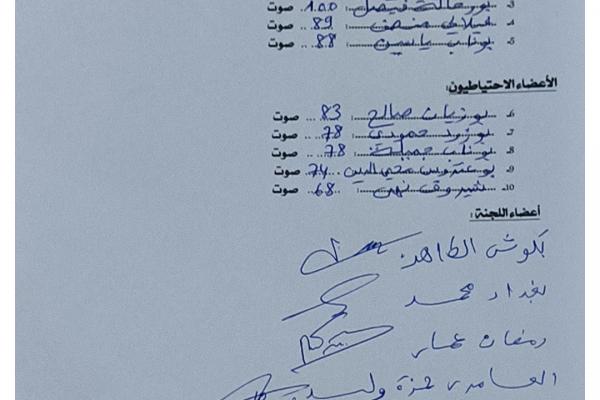 3- بورحالة فيصل: 100 صوت
4- ميلاي منصف: 89 صوت
5- بوناب ياسين: 88 صوت
الأعضاء الاحتياطيون:
6- بوزيان صالح: 83 صوت
7- بوزرد حمودي: 78 صوت
8- بوناب جميلة: 78 صوت
9- بوعتروس محي الدين 74 صوت
10- شيروف نهى: 68 صوت
أعضاء اللجنة:
بكوش الطاهر
بغداد محمد
رمضان عمار
العامري حمزة وليد